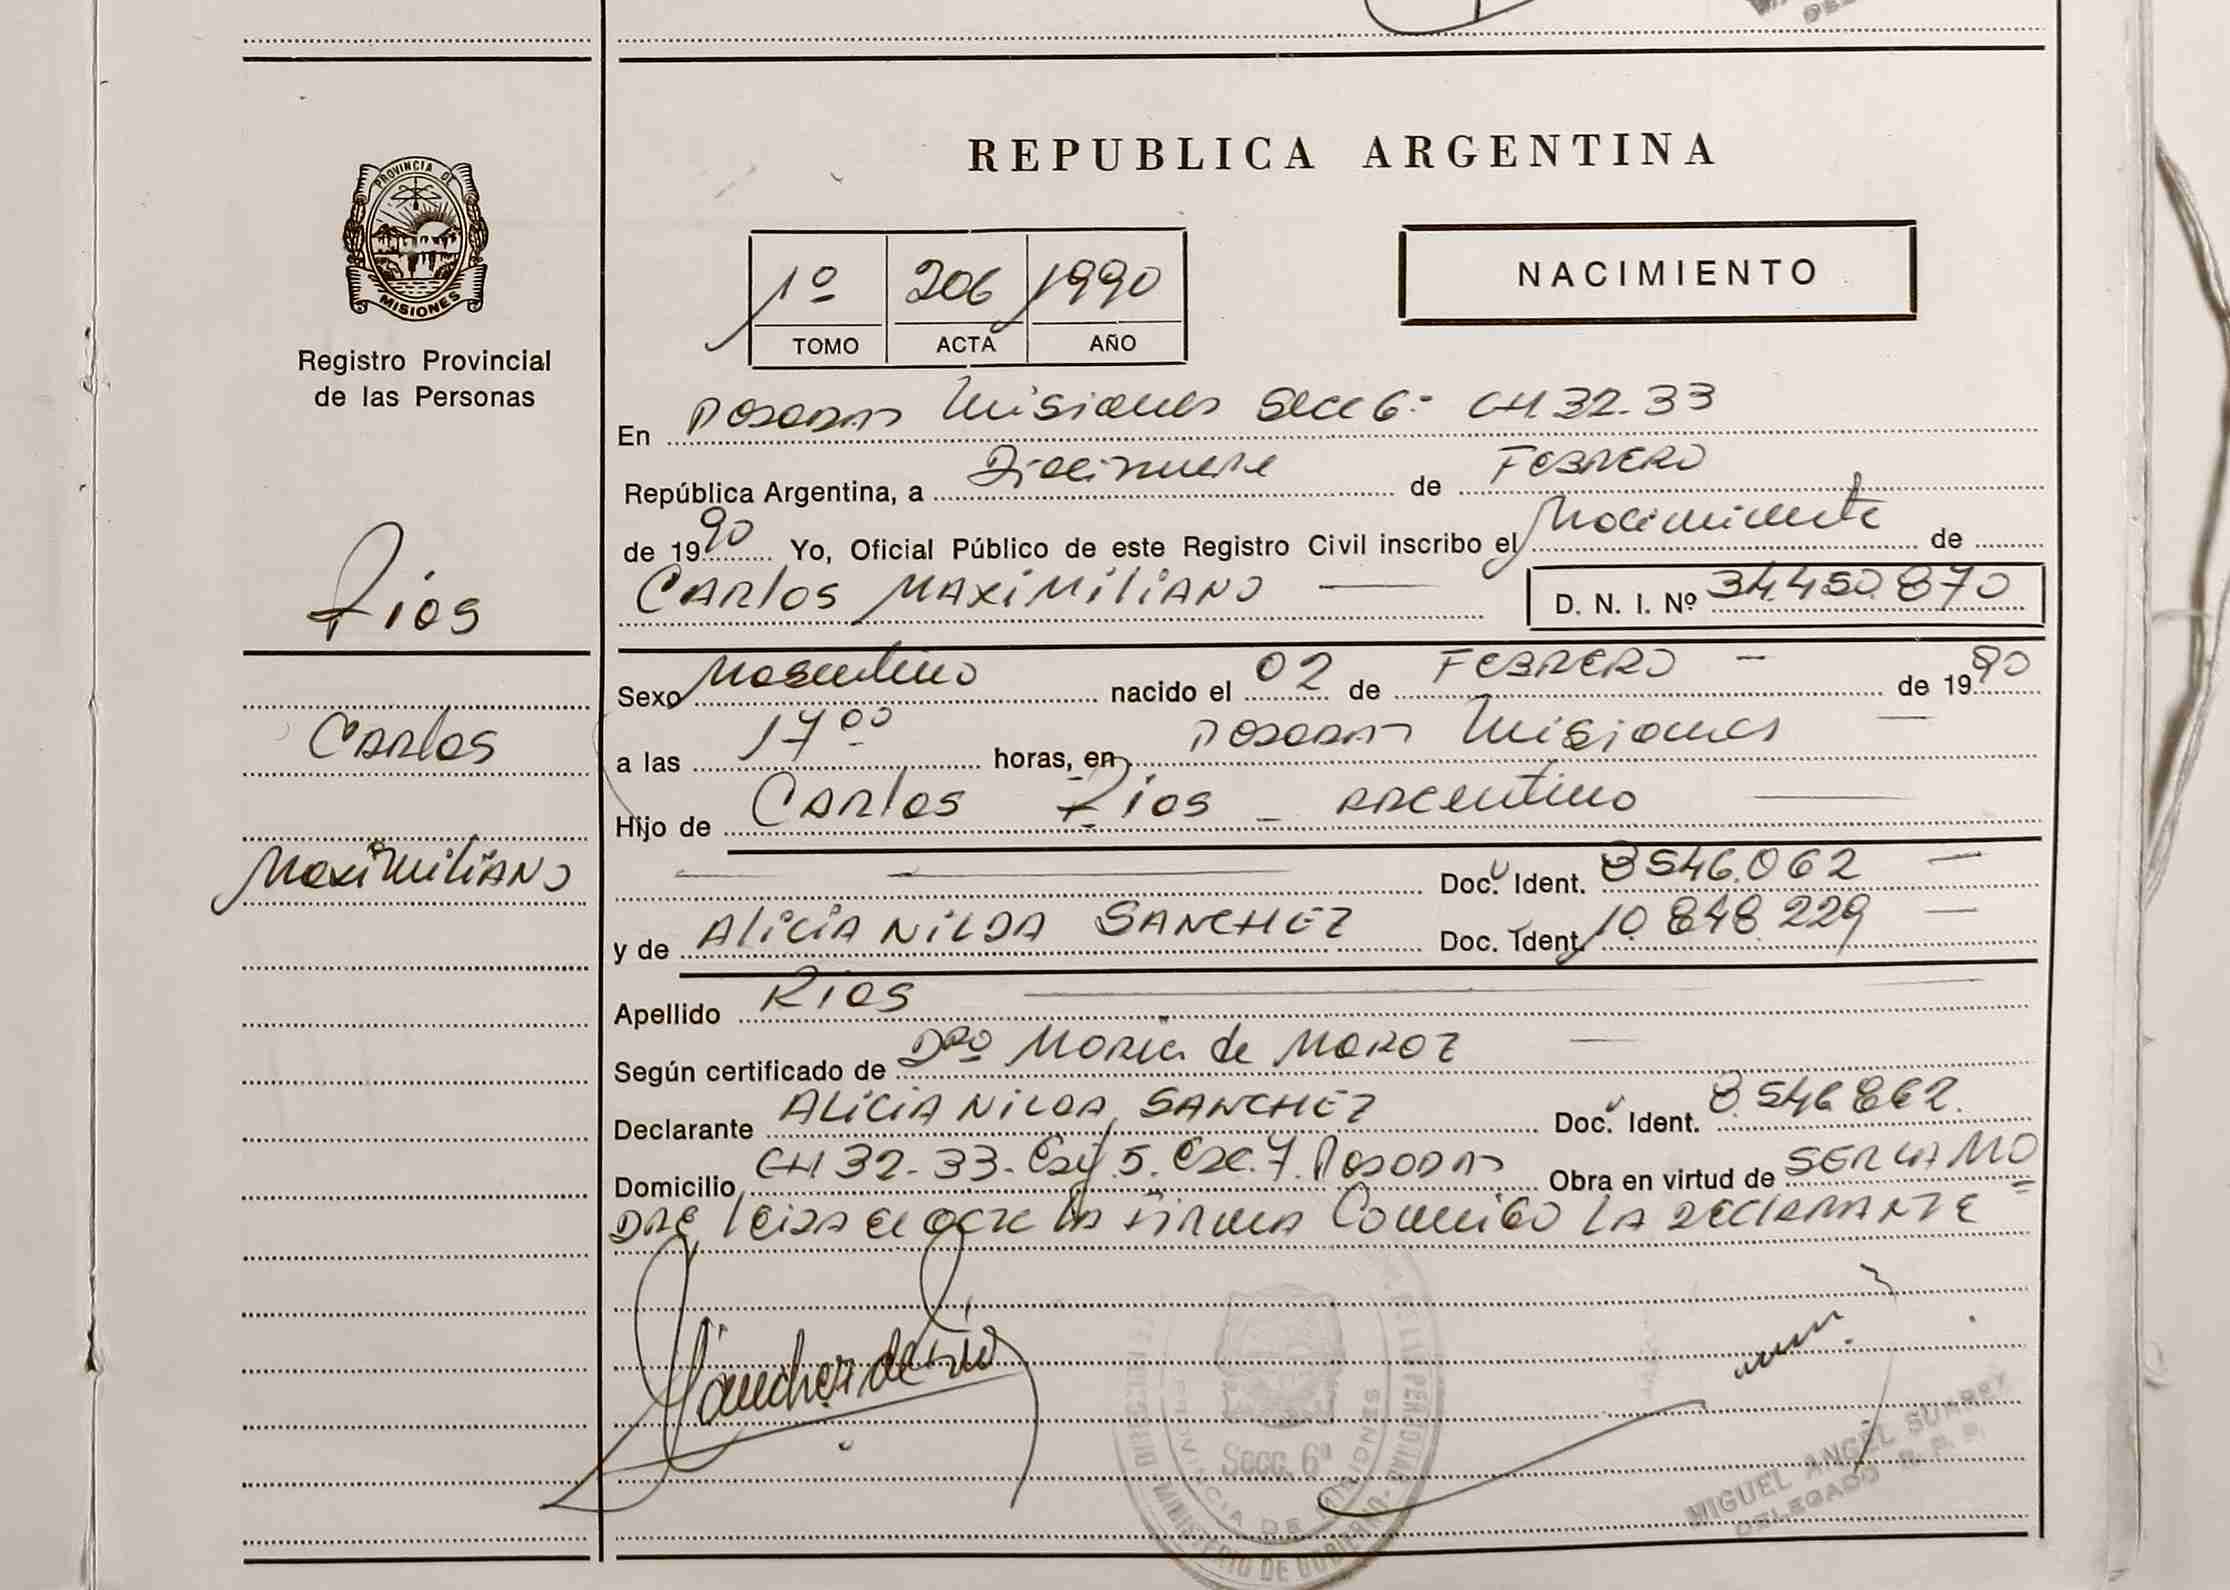 PROVINCIA DE
MISIONES
Registro Provincial
de las Personas
Rios
Carlos
Maximiliano
REPUBLICA ARGENTINA
1º 206 1990
TOMO ACTA AÑO
NACIMIENTO
En Posadas Misiones Secc 6ª CH 32-33
República Argentina, a Diecinueve de FEBRERO
de 1990 Yo, Oficial Público de este Registro Civil inscribo el Nacimiento de
CARLOS MAXIMILIANO D. N. I. Nº 34.450.870
Sexo Masculino nacido el 02 de FEBRERO de 1990
a las 17 00 horas, en Posadas Misiones
Hijo de Carlos Rios - Argentino
Doc. Ident. 8546.062
y de ALICIA NILDA SANCHEZ Doc. Ident. 10.848.229
Apellido Rios
Según certificado de Dra Maria de
Declarante ALICIA NILDA SANCHEZ Doc. Ident. 8.546.862.
Domicilio CH 32-33- 5. 7. Posadas Obra en virtud de SER LA MA
DRE leida el acta la firma Conmigo LA DECLARANTE =
Sanchez de Rios
Secc. 6ª
PROVINCIA DE MISIONES
MINISTERIO DE GOBIERNO
MIGUEL ANGEL SUAREZ
DELEGADO R. P. P.